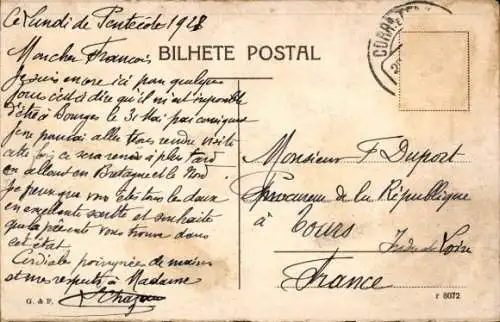 Ce Lundi de Pentecôte 1928
Mon cher François
Je suis encore ici pour quelques
jours c'est à dire qu'il m'est impossible
d'être à Bourges le 31 Mai par conséquent
je ne pourrai aller vous rendre visite
cette fois ce sera remis à plus tard
en allant en Bretagne et le Nord
Je pense que vous êtes tous les deux
en excellente santé et souhaite
que la présente vous trouve dans
cet état.
Cordiale poignée de mains
et mes respects à Madame
G. & F.
BILHETE POSTAL
CORR
Monsieur F Duport
Procureur de la République
à Tours
Indre et Loire
France
r 8072